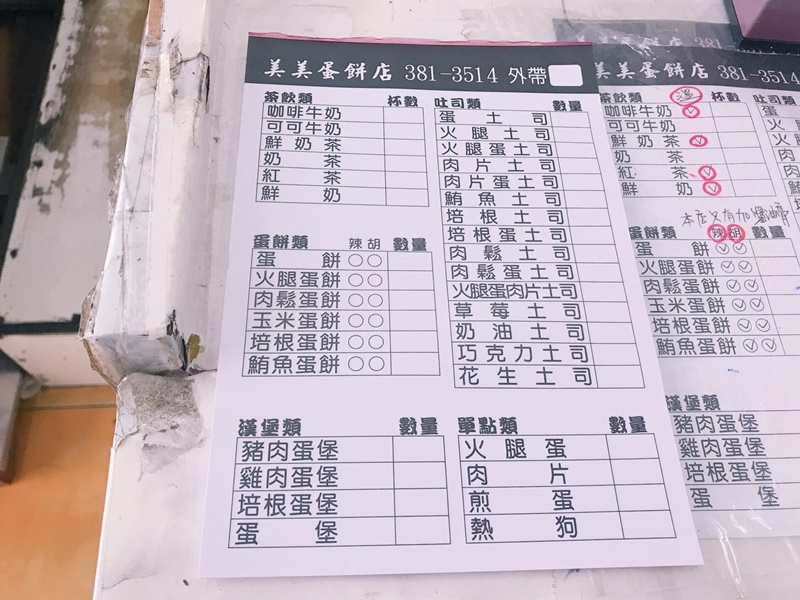 美美蛋餅店 381-3514 外帶
茶飲類 杯數
咖啡牛奶
可可牛奶
鮮奶茶
奶茶
紅茶
鮮奶
蛋餅類 辣 胡 數量
蛋餅 ○○
火腿蛋餅 ○○
肉鬆蛋餅 ○○
玉米蛋餅 ○○
培根蛋餅 ○○
鮪魚蛋餅 ○○
吐司類 數量
蛋土司
火腿土司
火腿蛋土司
肉片土司
肉片蛋土司
鮪魚土司
培根土司
培根蛋土司
肉鬆土司
肉鬆蛋土司
火腿蛋肉片土司
草莓土司
奶油土司
巧克力土司
花生土司
漢堡類 數量
豬肉蛋堡
雞肉蛋堡
培根蛋堡
蛋堡
單點類 數量
火腿蛋
肉片
煎蛋
熱狗
美美蛋餅店 381-3514
茶飲類 溫 杯數
咖啡牛奶
可可牛奶
鮮奶茶
奶茶
紅茶
鮮奶
吐司類
蛋
火
火
肉
本店只有加醬油膏
蛋餅類 辣 胡 數量
蛋餅
火腿蛋餅
肉鬆蛋餅
玉米蛋餅
培根蛋餅
鮪魚蛋餅
漢堡類
豬肉蛋堡
雞肉蛋堡
培根蛋堡
蛋堡